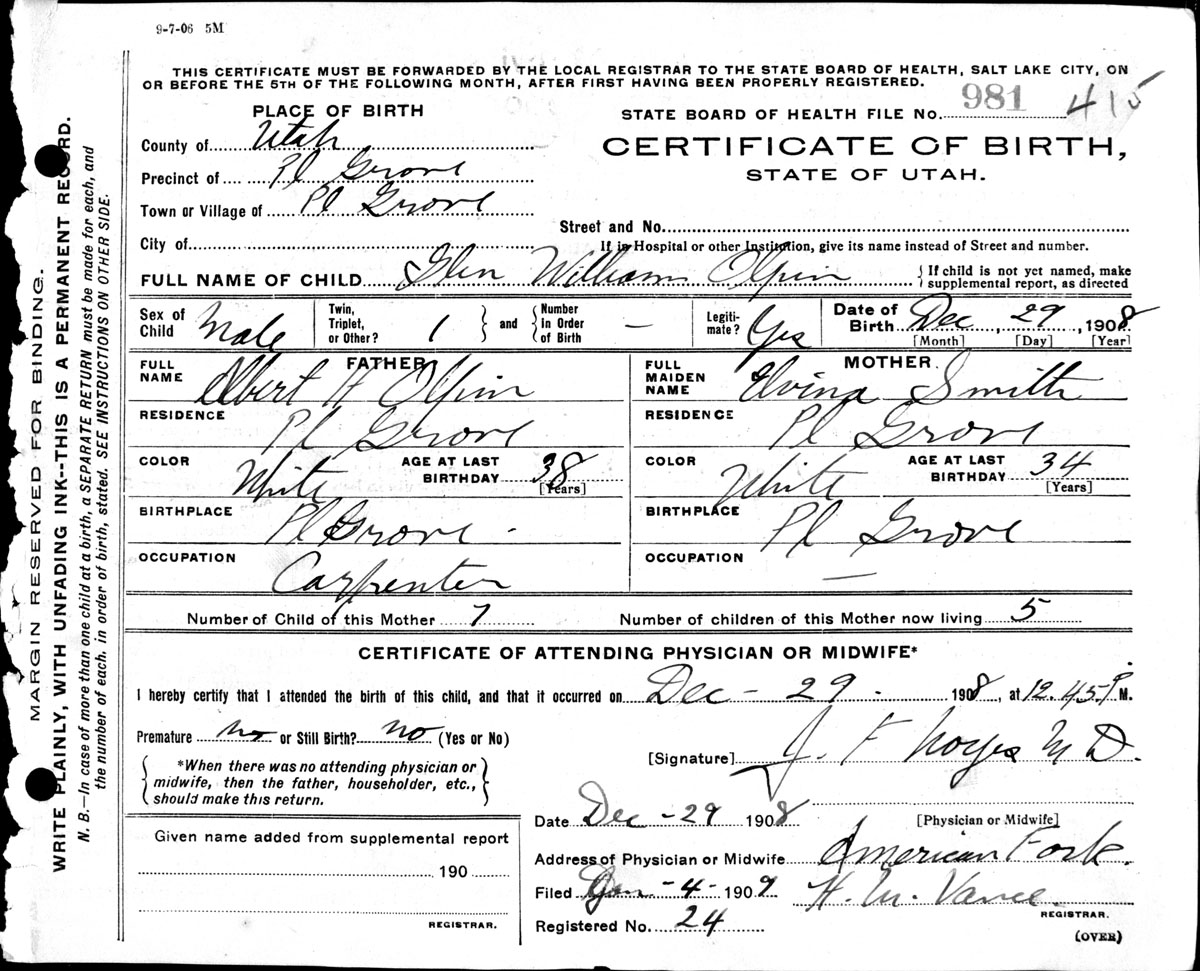 9-7-06 5M
THIS CERTIFICATE MUST BE FORWARDED BY THE LOCAL REGISTRAR TO THE STATE BOARD OF HEALTH, SALT LAKE CITY, ON
OR BEFORE THE 5TH OF THE FOLLOWING MONTH, AFTER FIRST HAVING BEEN PROPERLY REGISTERED.
PLACE OF BIRTH
STATE BOARD OF HEALTH FILE No. 981 415
County of Utah
CERTIFICATE OF BIRTH,
Precinct of Pl Grove
STATE OF UTAH.
Town or Village of Pl Grove
Street and No.
City of
If in Hospital or other Institution, give its name instead of Street and number.
FULL NAME OF CHILD Glen William Olpin { If child is not yet named, make supplemental report, as directed
Sex of Child Male Twin, Triplet, or Other? 1 } and { Number in Order of Birth — Legiti-mate? Yes Date of Birth Dec, 29, 1908
[Month] [Day] [Year]
FATHER
FULL NAME Albert H Olpin
MOTHER
FULL MAIDEN NAME Elvina Smith
RESIDENCE Pl Grove
RESIDENCE Pl Grove
COLOR White AGE AT LAST BIRTHDAY 38 [Years]
COLOR White AGE AT LAST BIRTHDAY 34 [Years]
BIRTHPLACE Pl Grove -
BIRTHPLACE Pl Grove
OCCUPATION Carpenter
OCCUPATION —
Number of Child of this Mother 7 Number of children of this Mother now living 5
CERTIFICATE OF ATTENDING PHYSICIAN OR MIDWIFE*
I hereby certify that I attended the birth of this child, and that it occurred on Dec - 29 - 1908, at 12.45 P. M.
Premature no or Still Birth? no (Yes or No)
[Signature] J. F Noyes M D.
{ *When there was no attending physician or
midwife, then the father, householder, etc.,
should make this return. }
Date Dec - 29 1908
[Physician or Midwife]
Given name added from supplemental report
190
REGISTRAR.
Address of Physician or Midwife American Fork.
Filed Jan - 4 - 1909 H. M. Vance
REGISTRAR.
Registered No. 24
(OVER)
MARGIN RESERVED FOR BINDING.
WRITE PLAINLY, WITH UNFADING INK--THIS IS A PERMANENT RECORD.
N. B.—In case of more than one child at a birth, a SEPARATE RETURN must be made for each, and
the number of each, in order of birth, stated. SEE INSTRUCTIONS ON OTHER SIDE.